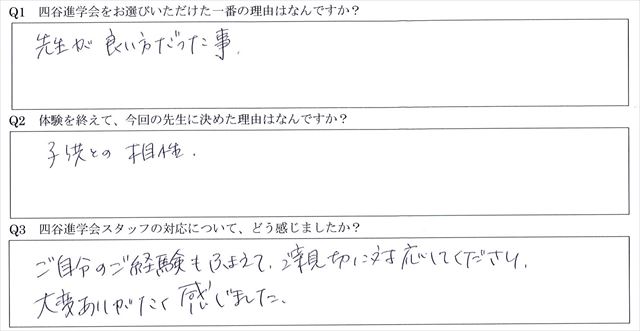 Q1 四谷進学会をお選びいただけた一番の理由はなんですか？
先生が良い方だった事.
Q2 体験を終えて、今回の先生に決めた理由はなんですか？
子供との相性.
Q3 四谷進学会スタッフの対応について、どう感じましたか？
ご自分のご経験もふまえて、ご親切に対応してくださり、
大変ありがたく感じました。